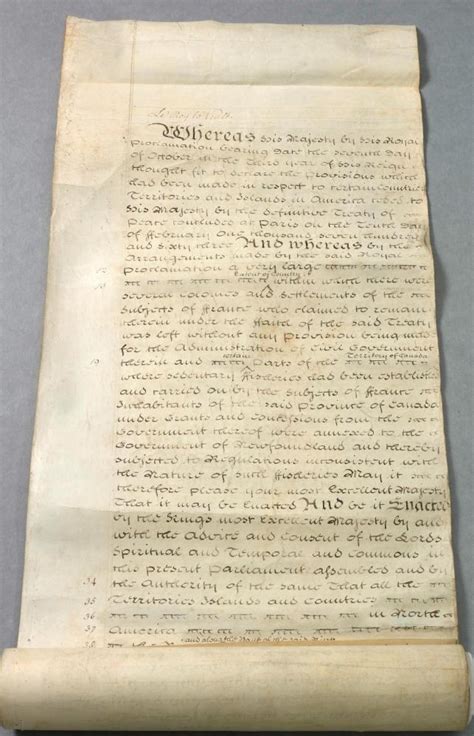 Le Roy le Veult
Whereas His Majesty by His Royal
Proclamation bearing Date the seventh Day
of October in the Third year of His Reign
thought fit to declare the Provisions which
had been made in respect to certain Countries
Territories and Islands in America ceded to
His Majesty by the definitive Treaty of
Peace concluded at Paris on the Tenth Day
of February One thousand seven hundred
and sixty three And whereas by the
Arrangements made by the said Royal
12 Proclamation a very large
Extent of Country
within which there were
several Colonies and Settlements of the
Subjects of France who claimed to remain
therein under the Faith of the said Treaty
was left without any Provision being made
for the Administration of Civil Government
certain Territory of Canada
19 therein and Parts of the
where sedentary Fisheries had been established
and carried on by the Subjects of France
Inhabitants of the said Province of Canada
under Grants and Concessions from the
Government thereof were annexed to the
Government of Newfoundland and thereby
subjected to Regulations inconsistent with
the Nature of such Fisheries May it
therefore please your most Excellent Majesty
That it may be Enacted And be it Enacted
by the Kings most Excellent Majesty by and
with the Advice and Consent of the Lords
Spiritual and Temporal and Commons in
this present Parliament assembled and by
34 the Authority of the same That all the
35 Territories Islands and Countries
36 in North
37 America
38